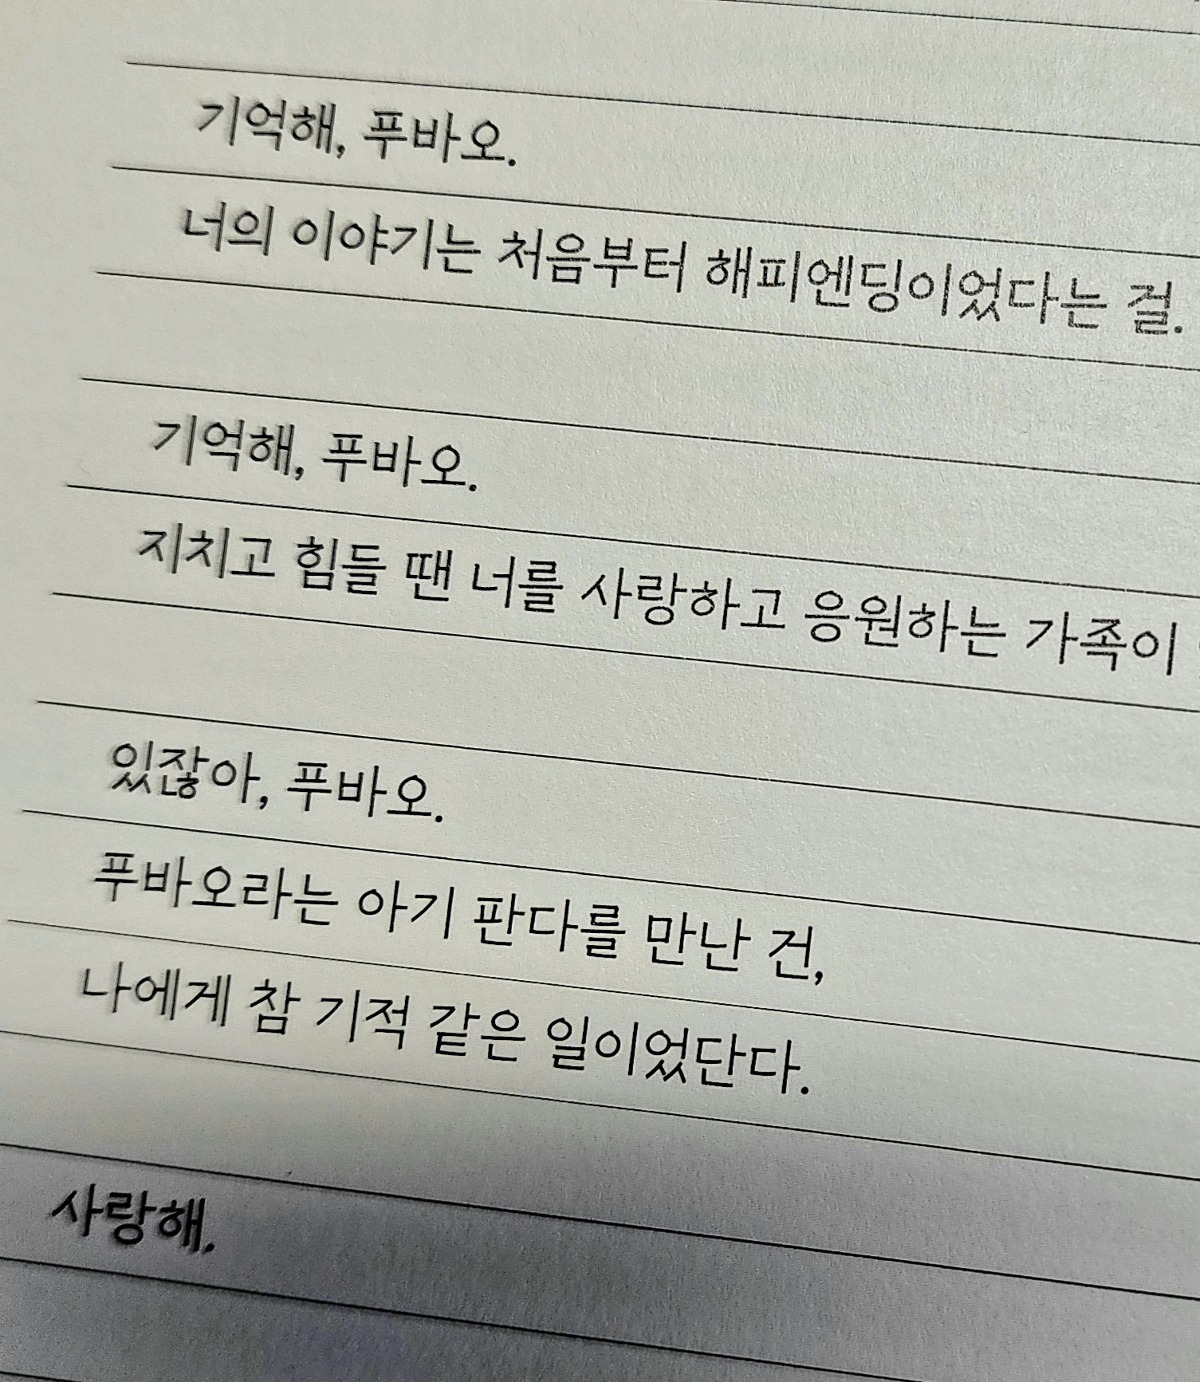 기억해, 푸바오.
너의 이야기는 처음부터 해피엔딩이었다는 걸.
기억해, 푸바오.
지치고 힘들 땐 너를 사랑하고 응원하는 가족이
있잖아, 푸바오.
푸바오라는 아기 판다를 만난 건,
나에게 참 기적 같은 일이었단다.
사랑해.